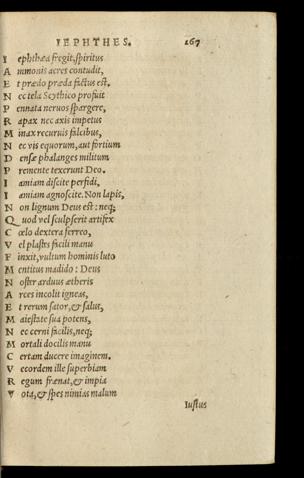 IEPHTHES. 167
I ephthæa fregit, spiritus
A mmonis acres contudit,
E t prædo præda factus est.
N ec tela Scythico profuit
P ennata neruos spargere,
R apax nec axis impetus
M inax recuruis falcibus,
N ec vis equorum, aut fortium
D ensæ phalanges militum
P remente texerunt Deo.
I amiam discite perfidi,
I amiam agnoscite. Non lapis,
N on lignum Deus est: neq;
Q uod vel sculpserit artifex
C œlo dextera ferreo,
V el plastes facili manu
F inxit, vultum hominis luto
M entitus madido: Deus
N oster arduus ætheris
A rces incolit igneas,
E t rerum sator, & salus,
M aiestate sua potens,
N ec cerni facilis, neq;
M ortali docilis manu
C ertam ducere imaginem.
V ecordem ille superbiam
R egum frænat, & impia
V ota, & spes nimias malum
Iustus